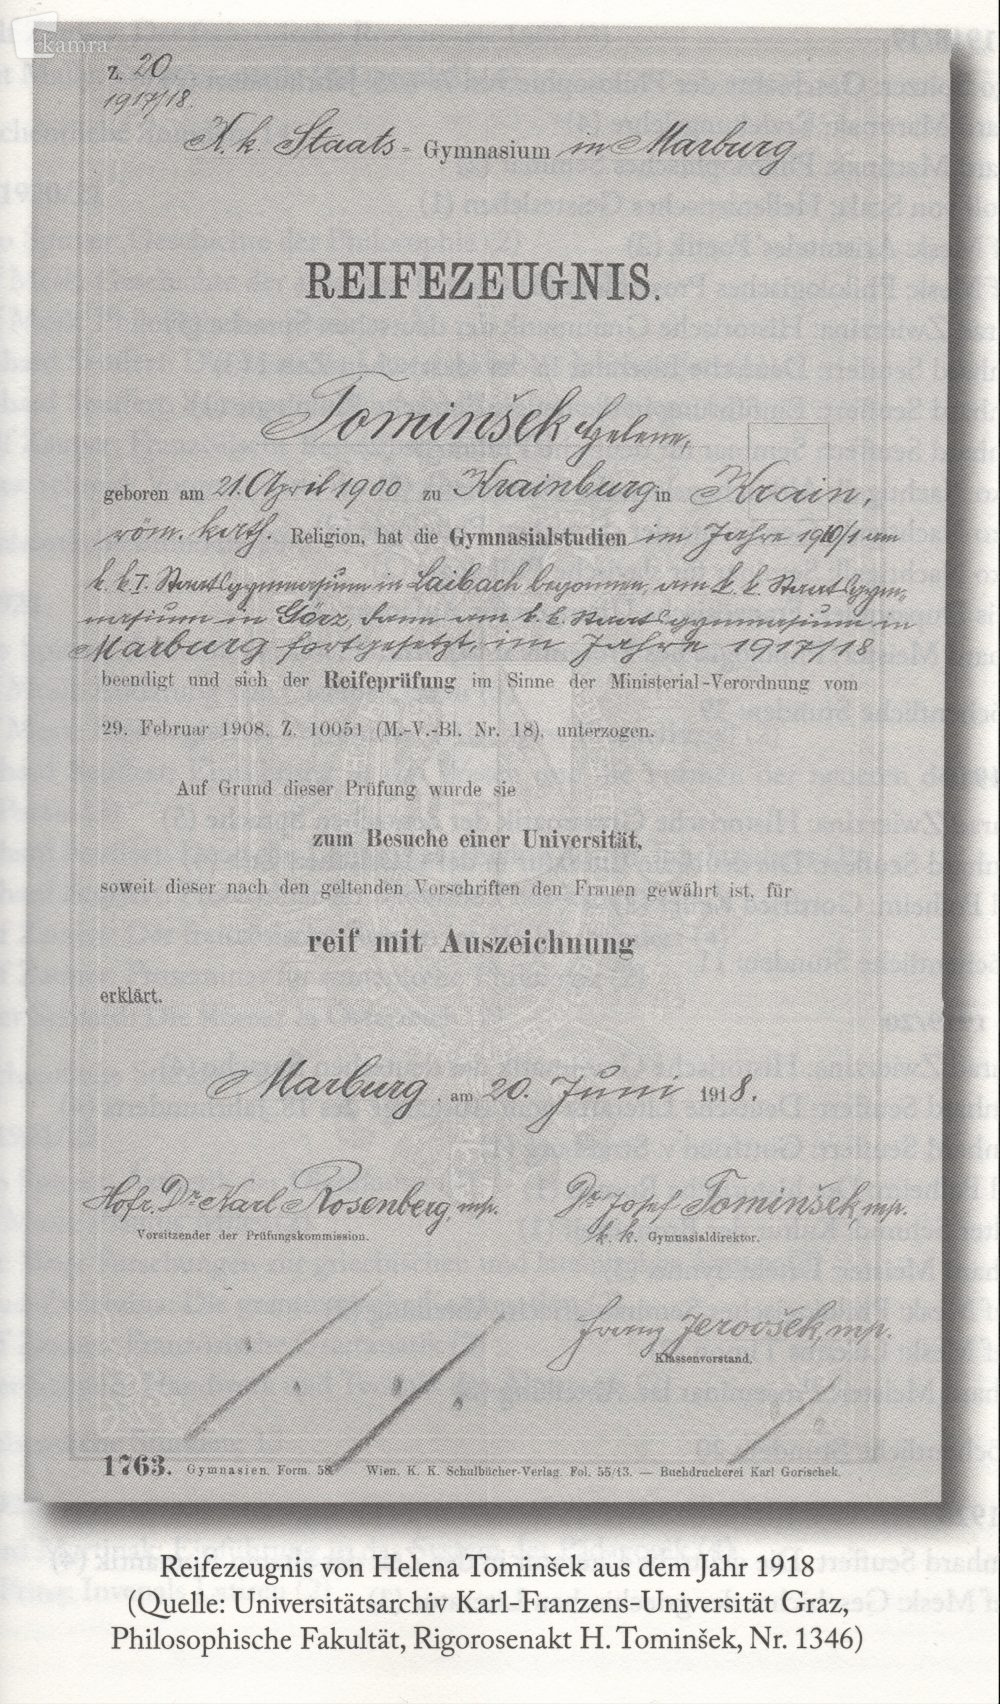 kamra
Z. 20
1917/18.
K. k. Staats- Gymnasium in Marburg
REIFEZEUGNIS.
Tominšek Helene,
geboren am 21. April 1900 zu Krainburg in Krain,
röm. kath. Religion, hat die Gymnasialstudien im Jahre 1910/1 am
k. k. I. Staatsgymnasium in Laibach begonnen, am k. k. Staatsgym-
nasium in Görz, dann am k. k. Staatsgymnasium in
Marburg fortgesetzt, im Jahre 1917/18
beendigt und sich der Reifeprüfung im Sinne der Ministerial-Verordnung vom
29. Februar 1908, Z. 10051 (M.-V.-Bl. Nr. 18), unterzogen.
Auf Grund dieser Prüfung wurde sie
zum Besuche einer Universität,
soweit dieser nach den geltenden Vorschriften den Frauen gewährt ist, für
reif mit Auszeichnung
erklärt.
Marburg, am 20. Juni 1918.
Hofr. Dr Karl Rosenberg, mp. Dr Josef Tominšek, mp.
Vorsitzender der Prüfungskommission. k. k. Gymnasialdirektor.
Franz Jerovšek, mp.
Klassenvorstand.
1763. Gymnasien, Form. 58. Wien. K. K. Schulbücher-Verlag. Fol. 55/13. — Buchdruckerei Karl Gorischek.
Reifezeugnis von Helena Tominšek aus dem Jahr 1918
(Quelle: Universitätsarchiv Karl-Franzens-Universität Graz,
Philosophische Fakultät, Rigorosenakt H. Tominšek, Nr. 1346)